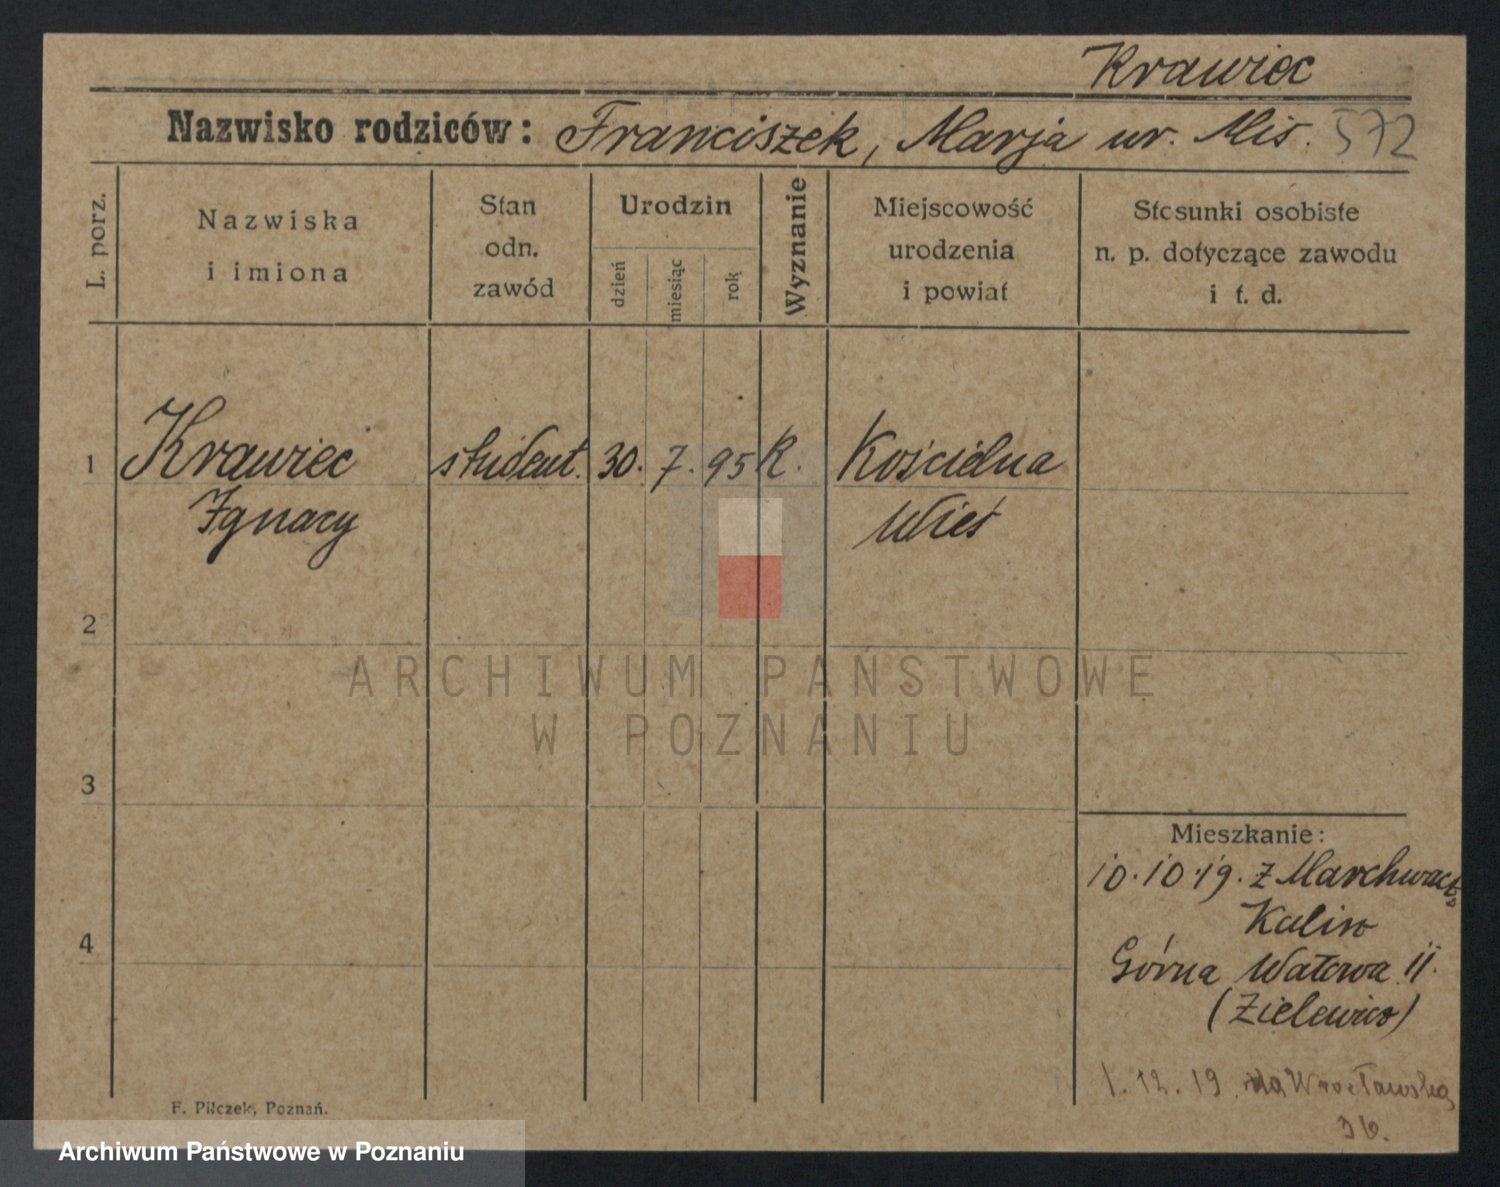 Krawiec
Nazwisko rodziców: Franciszek, Marja ur. Mis. 572
L. porz.
Nazwiska
i imiona
Stan
odn.
zawód
Urodzin
dzień
miesiąc
rok
Wyznanie
Miejscowość
urodzenia
i powiat
Stosunki osobiste
n. p. dotyczące zawodu
i t. d.
1 Krawiec student. 30. 7. 95 R. Kościelna
Ignacy Wieś
2
ARCHIWUM PAŃSTWOWE
W POZNANIU
3
Mieszkanie:
10.10.19. z Marchwacz
Kalisz
4
Górna Wałowa 11.
(Zielewicz)
1.12.19. na Wrocławską
36.
F. Pilczek, Poznań.
Archiwum Państwowe w Poznaniu